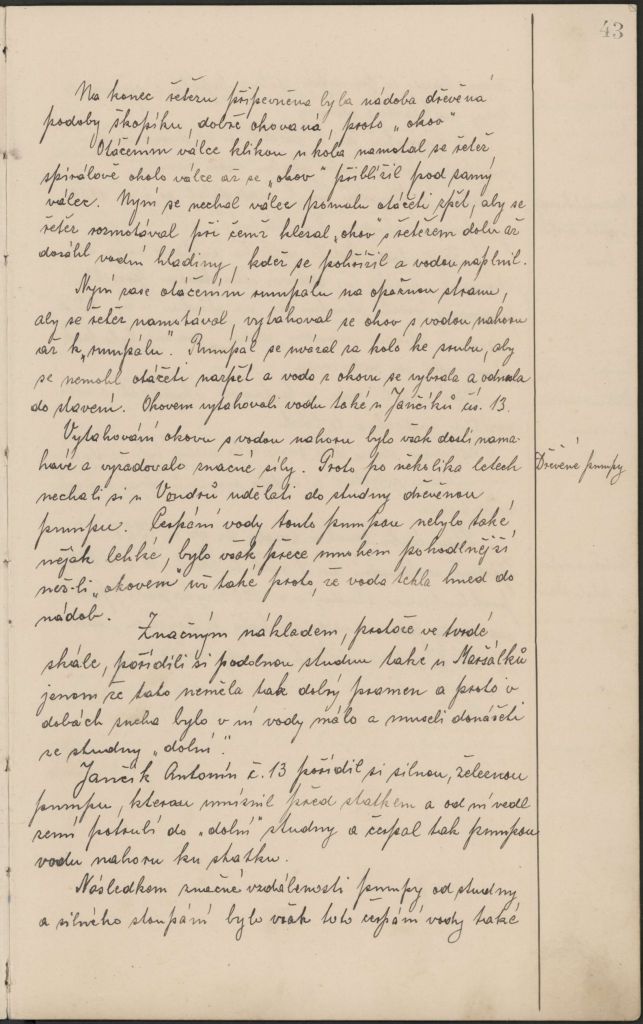 43
Na konec řetězu připevněna byla nádoba dřevěná
podoby škopíku, dobře okovaná, proto „okov"
Otáčením válce klikou u kola namotal se řetěz
spirálově okolo válce až se „okov" přiblížil pod samý
válec. Nyní se nechal válec pomalu otáčeti zpět, aby se
řetěz rozmotával při čemž klesal „okov" s řetězem dolu až
dosáhl vodní hladiny, kdež se pohřížil a vodou naplnil.
Nyní zase otáčením rumpálu na opačnou stranu,
aby se řetěz namotával, vytahoval se okov s vodou nahoru
až k „rumpálu". Rumpál se uvázal za kolo ke srubu, aby
se nemohl otáčeti nazpět a voda z okovu se vybrala a odnesla
do stavení. Okovem vytahovali vodu také u Jančíků čís. 13.
Vytahování okovu s vodou nahoru bylo však dosti nama-
havé a vyžadovalo značné síly. Proto po několika letech
Dřevěné pumpy
nechali si u Vondrů udělati do studny dřevěnou
pumpu. Čerpání vody touto pumpou nebylo také
nějak lehké, bylo však přece mnohem pohodlnější
než-li „okovem" už také proto, že voda tekla hned do
nádob.
Značným nákladem, protože ve tvrdé
skále, pořídili si podobnou studnu také u Maršálků
jenom že tato neměla tak dobrý pramen a proto v
dobách sucha bylo v ní vody málo a museli donášeti
ze studny „dolní".
Jančík Antonín č. 13 pořídil si silnou, železnou
pumpu, kterou umístnil před statkem a od ní vedl
zemí potrubí do „dolní" studny a čerpal tak pumpou
vodu nahoru ku statku.
Následkem značné vzdálenosti pumpy od studny
a silného stoupání bylo však toto čerpání vody také